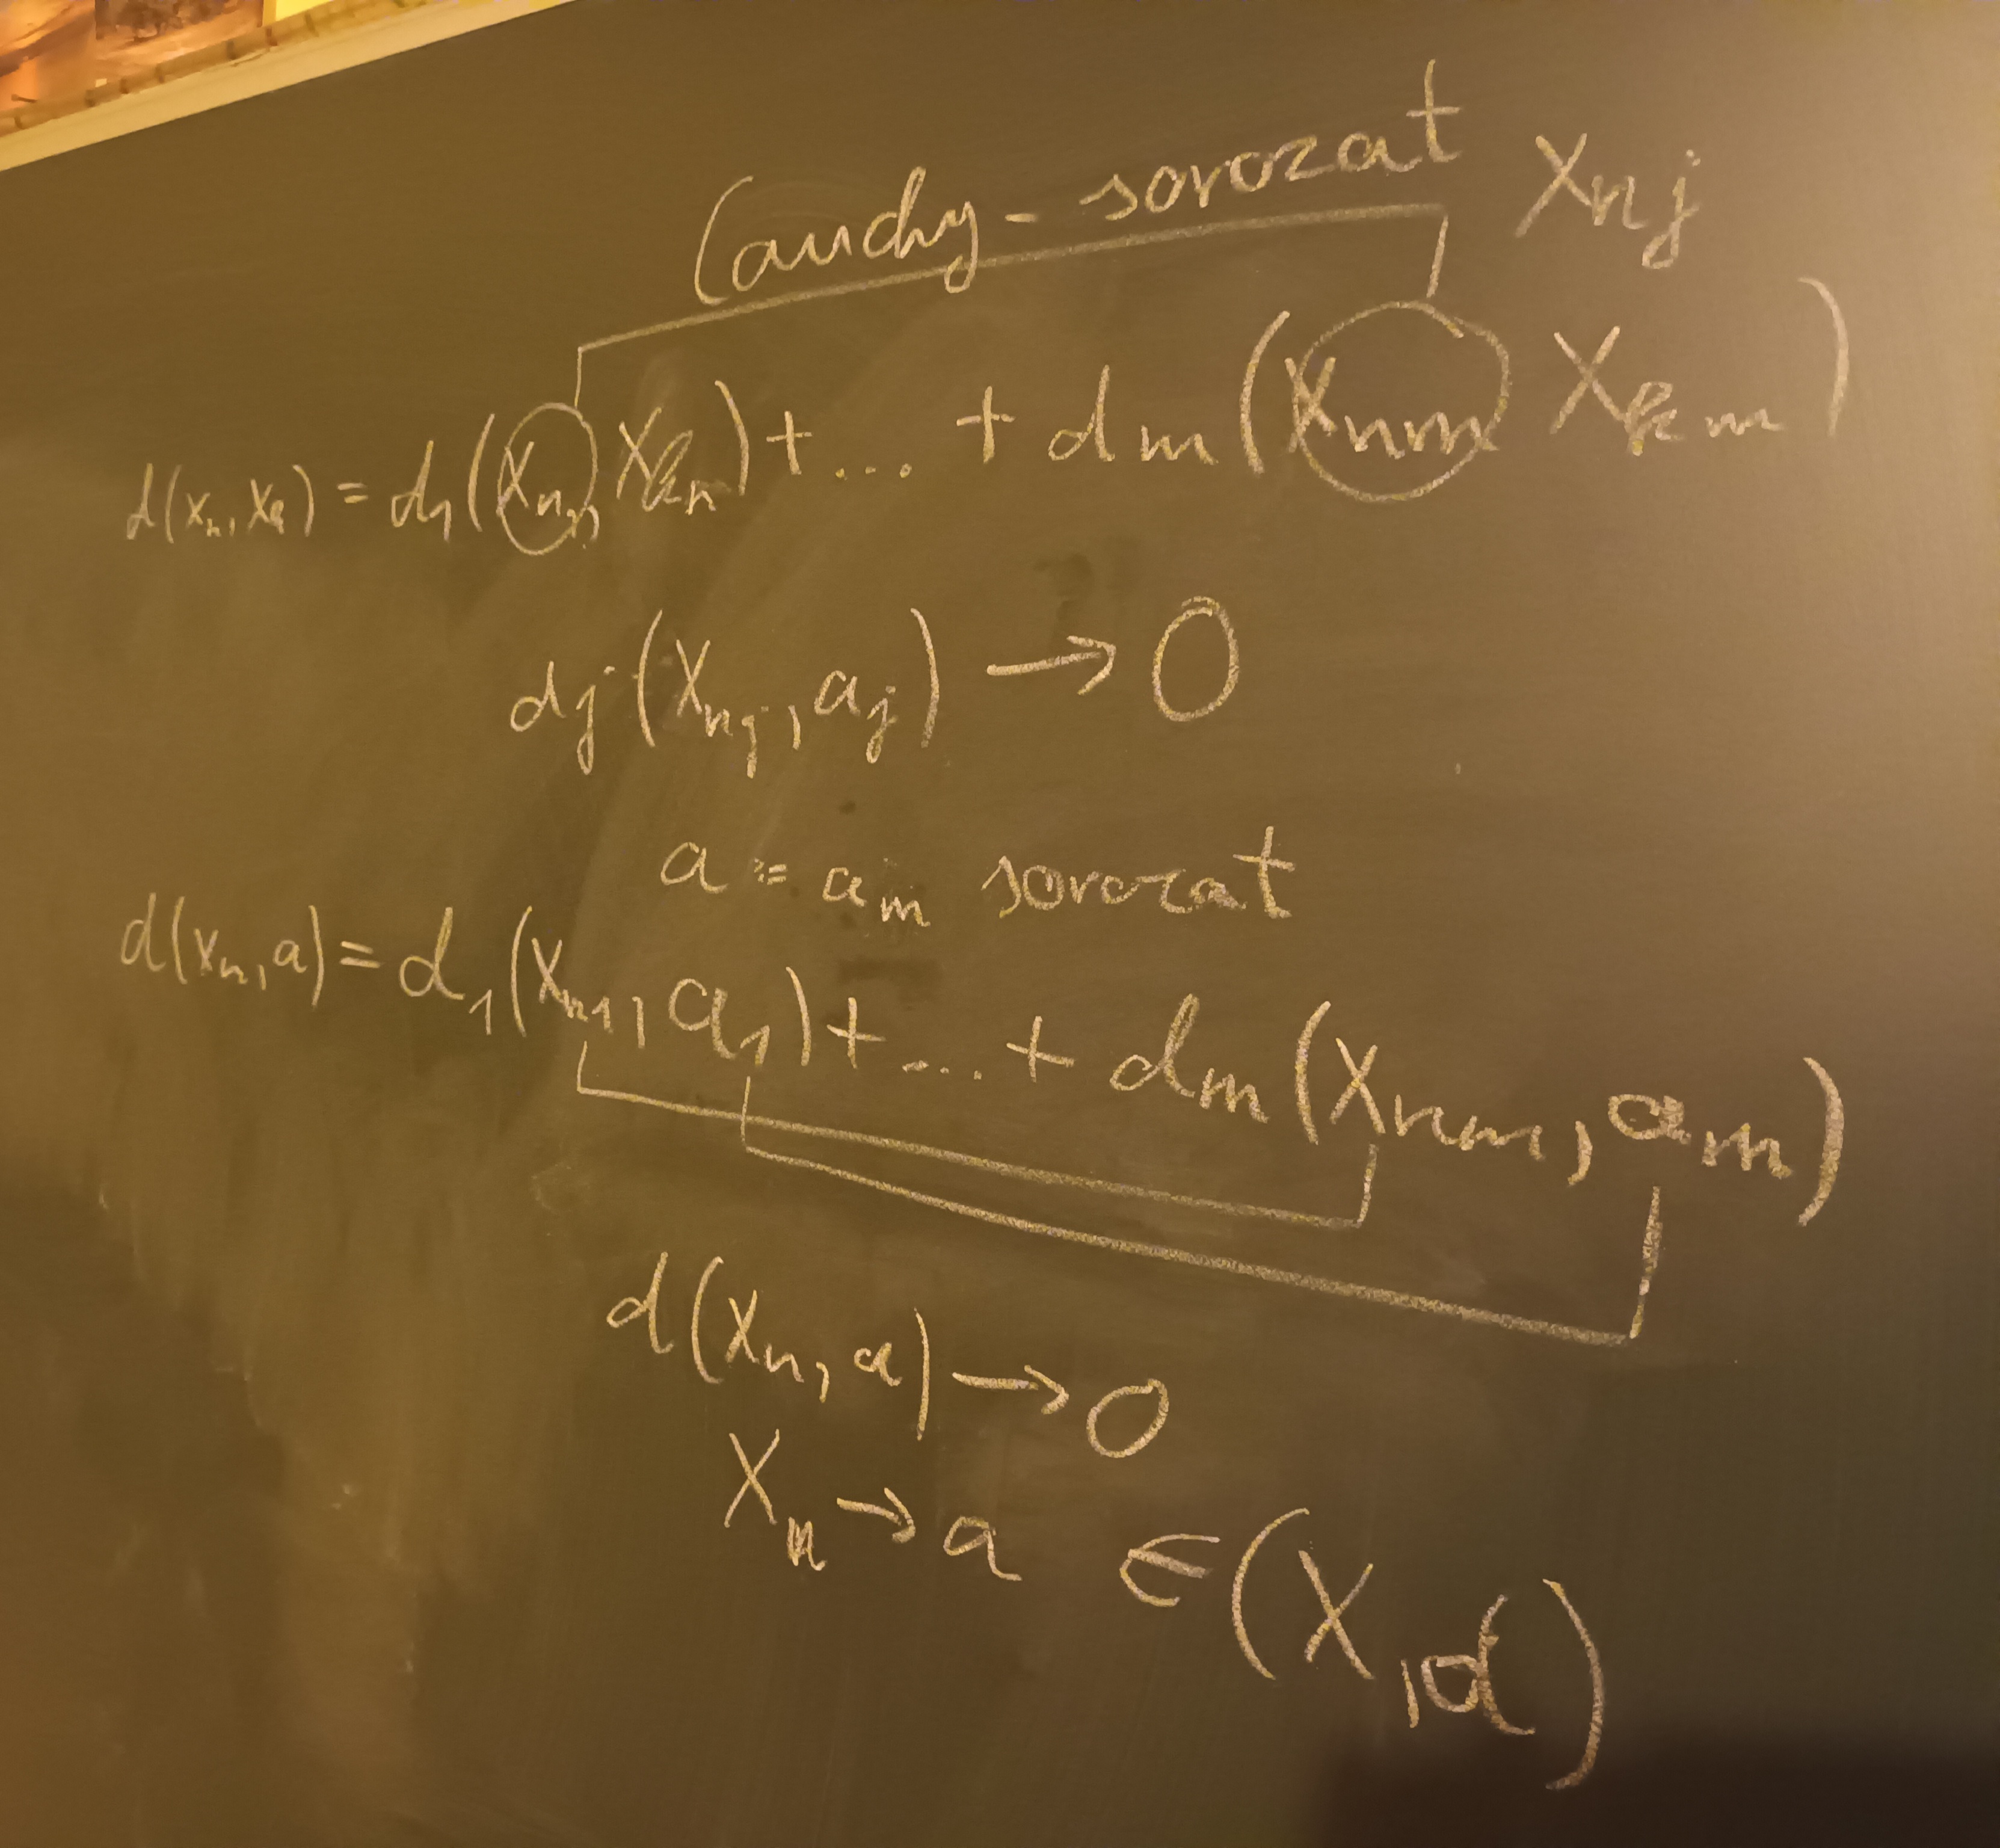 Cauchy-sorozat xnj
d(xn, xk) = d1(xn1, xk1) + ... + dm(xnm xkm)
dj(xnj, aj) → 0
a = am sorozat
d(xn, a) = d1(xn1, a1) + ... + dm(xnm, am)
d(xn, a) → 0
xn → a ∈ (X, d)